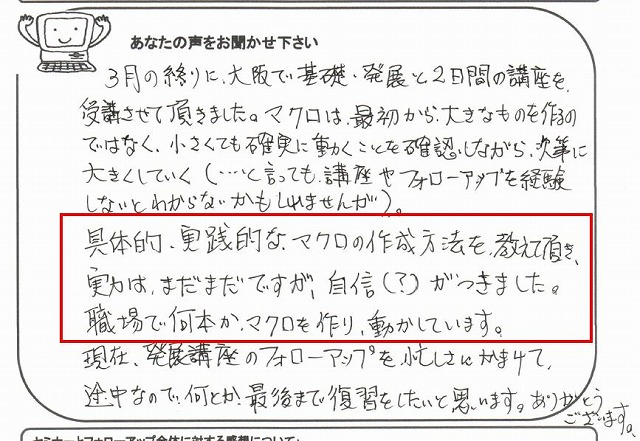 あなたの声をお聞かせ下さい
3月の終りに、大阪で基礎・発展と2日間の講座を、
受講させて頂きました。マクロは、最初から、大きなものを作るの
ではなく、小さくても確実に動くことを確認しながら、次第に
大きくしていく(…と言っても、講座やフォローアップを経験
しないとわからないかもしれませんが)。
具体的、実践的な、マクロの作成方法を、教えて頂き、
実力は、まだまだですが、自信(?)がつきました。
職場で何本か、マクロを作り、動かしています。
現在、発展講座のフォローアップを、忙しさにかまけて、
途中なので、何とか、最後まで復習をしたいと思います。ありがとう
ございます。
セミナーとフォローアップ全体に対する感想について: